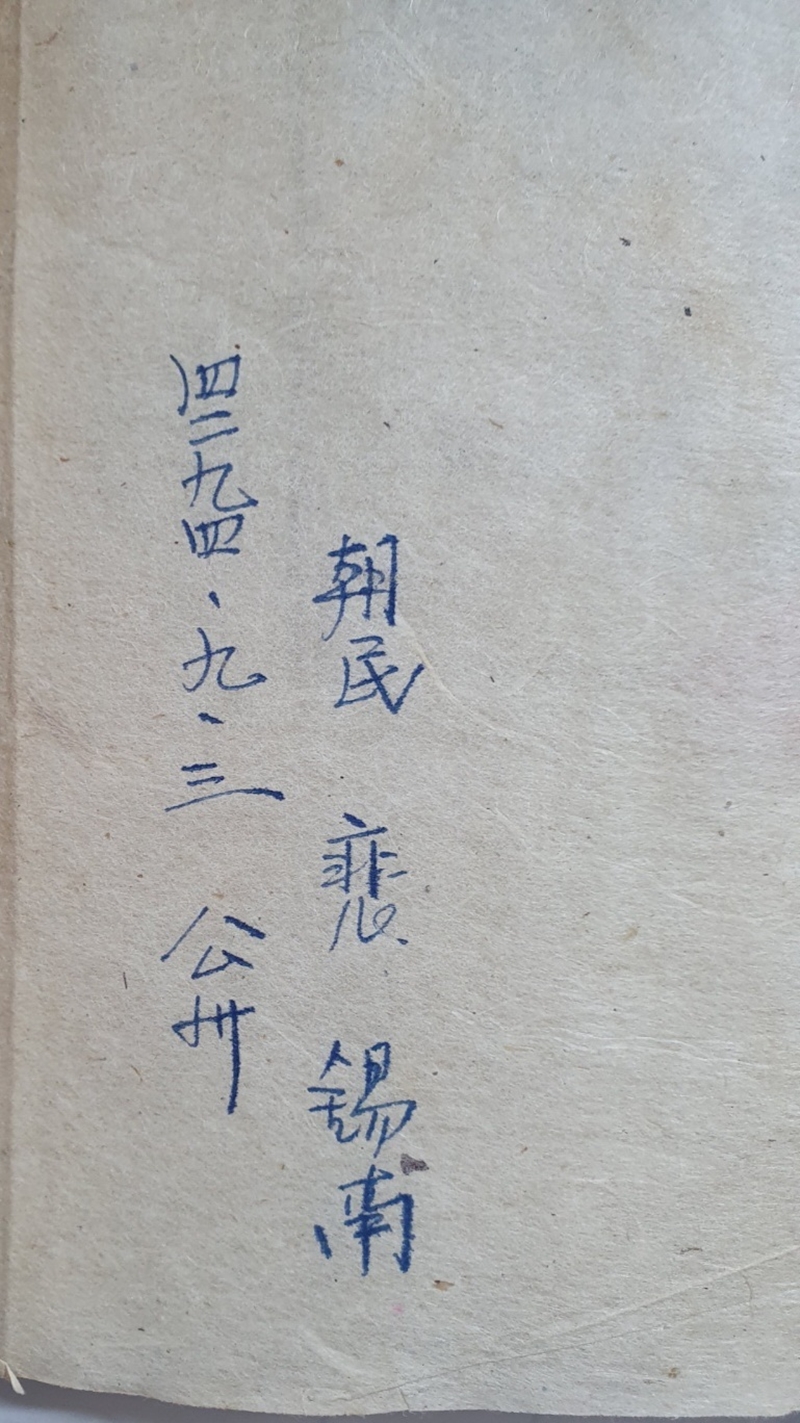 朝民 悲 锡南
四二九四·九·三 公卅